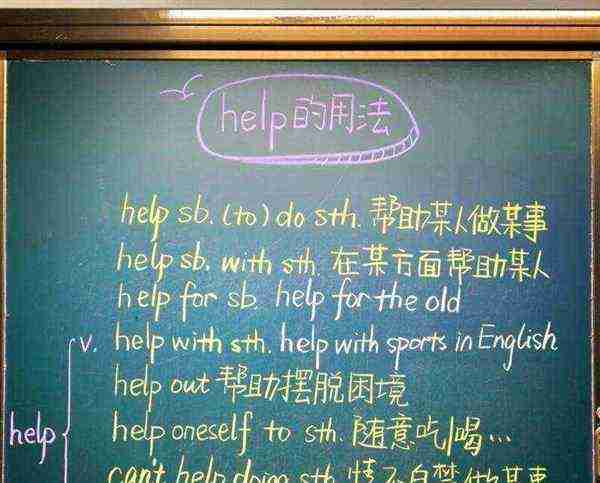 help的用法
help sb. (to) do sth. 帮助某人做某事
help sb. with sth. 在某方面帮助某人
help for sb. help for the old
v. help with sth. help with sports in English
help out 帮助摆脱困境
help
help oneself to sth. 随意吃/喝...
can't help doing sth. 情不自禁做某事